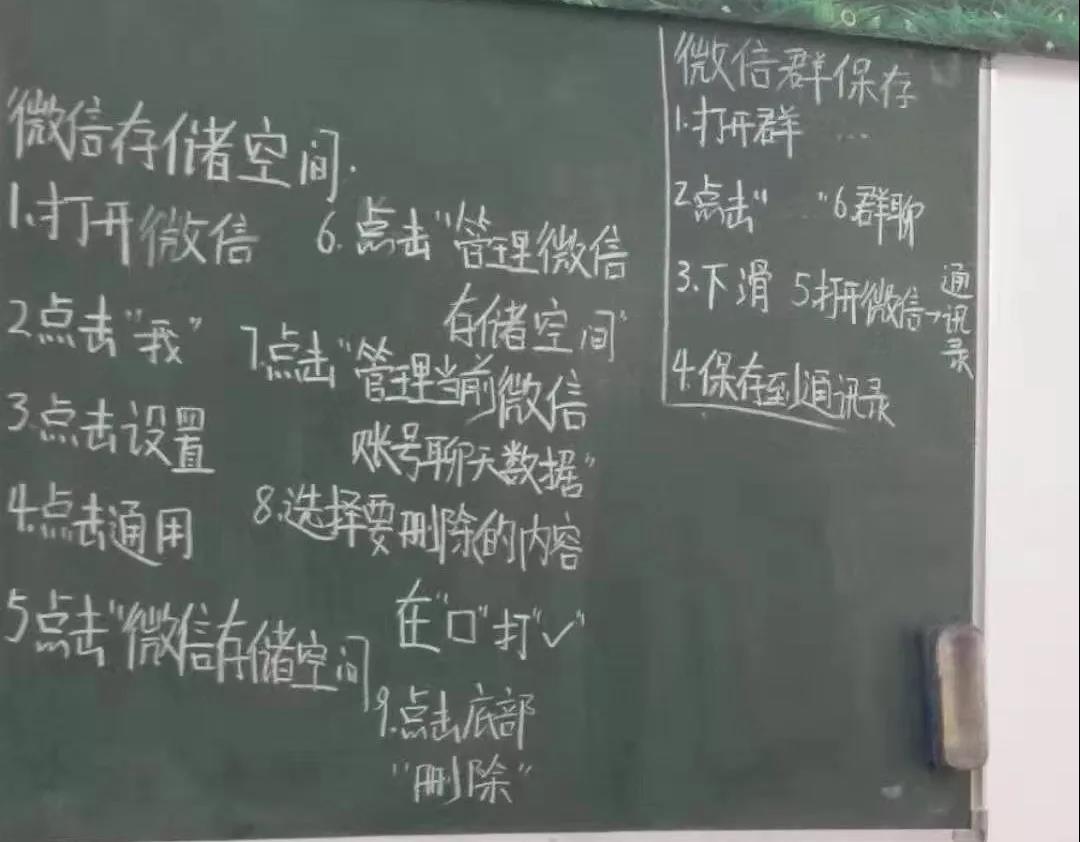 微信存储空间.
1.打开微信
2.点击"我"
3.点击设置
4.点击通用
5点击"微信存储空间
6.点击"管理微信
存储空间"
7.点击"管理当前微信
账号聊天数据"
8.选择要删除的内容
在"口"打"✓"
9.点击底部
"删除"
微信群保存
1.打开群 ...
2点击" ..."
3.下滑
4.保存到通讯录
5.打开微信→通讯录
6.群聊